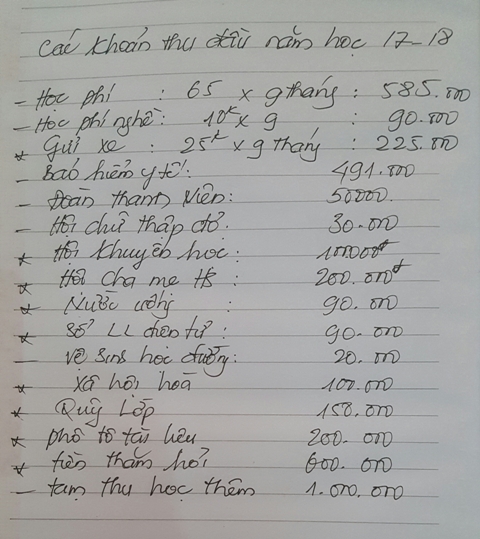 Các khoản thu đầu năm học 17-18
- Học phí : 65 x 9 tháng : 585.000
- Học phí nghề : 10k x 9 : 90.000
* Gửi xe : 25k x 9 tháng : 225.000
- Bảo hiểm y tế : 491.000
- Đoàn thanh niên : 50000.
- Hội chữ thập đỏ : 30.000
* Hội khuyến học : 100.000đ
* Hội cha mẹ HS : 200.000đ
* Nước uống : 90.000
* Sổ LL điện tử : 90.000
- Vệ sinh học đường : 20.000
* Xã hội hoá 100.000
* Quỹ Lớp 150.000
* phô tô tài liệu 200.000
* tiền thăm hỏi 600.000
- tạm thu học thêm 1.000.000